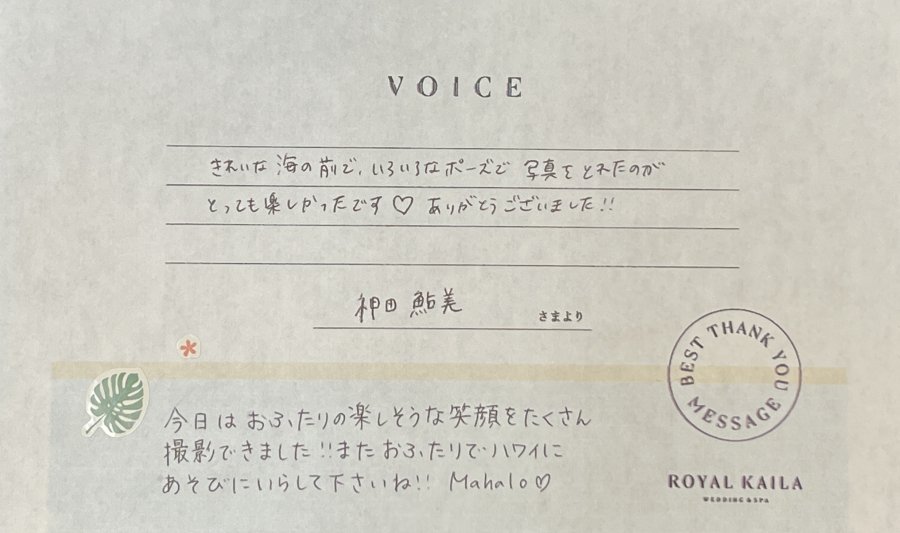 VOICE
きれいな海の前で、いろいろなポーズで 写真をとれたのが
とっても楽しかったです♡ ありがとうございました!!
神田 鮎美 さまより
BEST THANK YOU MESSAGE
今日はおふたりの楽しそうな笑顔をたくさん
撮影できました!!またおふたりでハワイに
あそびにいらして下さいね!! Mahalo♡
ROYAL KAILA
WEDDING & SPA